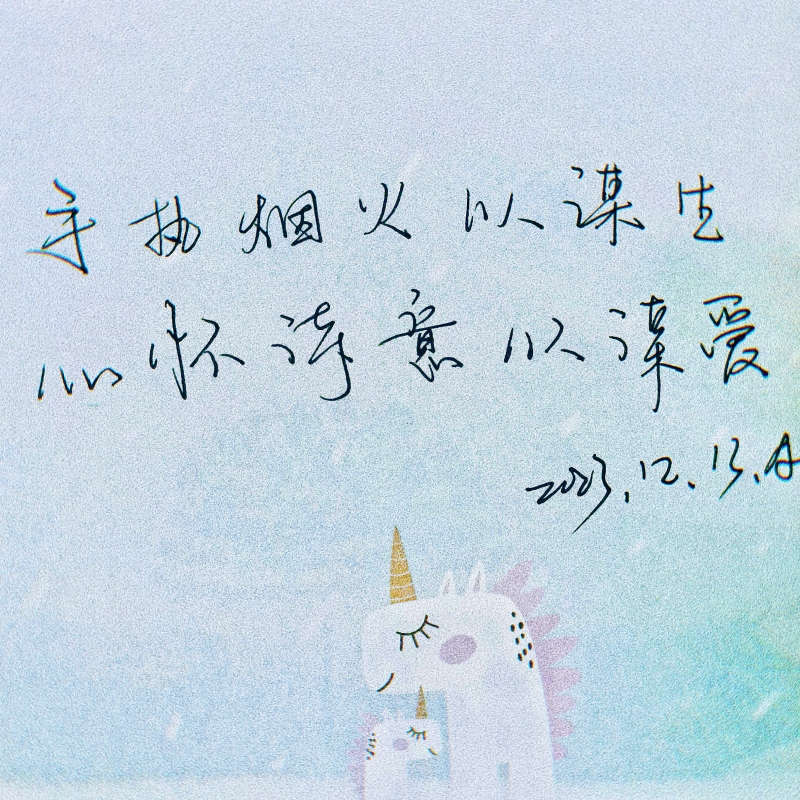 手执烟火以谋生
心怀诗意以谋爱
2023.12.13.A